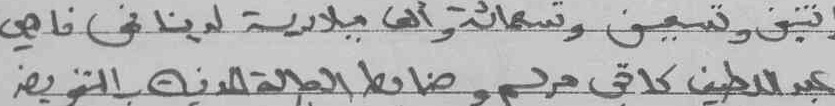 إثنين وتسعين وتسعمائة وألف ميلادية لدينا نحن قاضي
عبد اللطيف كافي مرسم وضابط الحالة المدنية بالتفويض